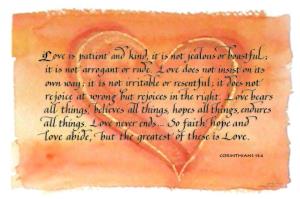 Love is patient and kind, it is not jealous or boastful;
it is not arrogant or rude. Love does not insist on its
own way; it is not irritable or resentful; it does not
rejoice at wrong but rejoices in the right. Love bears
all things, believes all things, hopes all things, endures
all things. Love never ends... So faith, hope and
love abide, but the greatest of these is Love.
CORINTHIANS 13:4